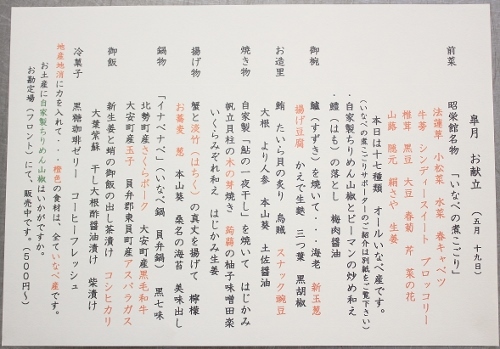 皐月　お献立　（五月　十九日）
前菜　昭栄館名物　「いなべの煮こごり」
法蓮草　小松菜　水菜　春キャベツ
牛蒡　シンディースイート　ブロッコリー
椎茸　黒豆　大豆　春菊　芹　菜の花
山蕗　隠元　絹さや　生姜
本日は十七種類　オールいなべ産です。
（いなべの煮こごりサポーターのご紹介は別紙をご覧下さい）
・自家製ちりめん山椒とピーマンの炒め和え
・鱧（はも）の落とし　梅肉醤油
御椀　鱸（すずき）を焼いて・・・海老　新玉葱
揚げ豆腐　かえで生麩　三つ葉　黒胡椒
お造里　鮪　たいら貝の炙り　烏賊　スナック豌豆
大根　より人参　本山葵　土佐醤油
焼き物　自家製「鮎の一夜干し」を焼いて　はじかみ
帆立貝柱の木の芽焼き　蒟蒻の柚子味噌田楽
いくらみぞれ和え　はじかみ生姜
揚げ物　蟹と淡竹（はちく）の真丈を揚げて　檸檬
お蕎麦　葱　本山葵　桑名の海苔　美味出し
鍋物　「イナベナベ」（いなべ鍋　貝弁鍋）　黒七味
北勢町産さくらポーク　大安町産黒毛和牛
大安町産玉子　員弁郡東員町産アスパラガス
御飯　新生姜と蛸の御飯の出し茶漬け　コシヒカリ
大葉紫蘇　干し大根酢醤油漬け　柴漬け
冷菓子　黒糖珈琲ゼリー　コーヒーフレッシュ
地産地消に力を入れて・・・橙色の食材は、全ていなべ産です。
お土産に自家製ちりめん山椒はいかがですか。
お勘定場（フロント）にて、販売中です。（５００円～）